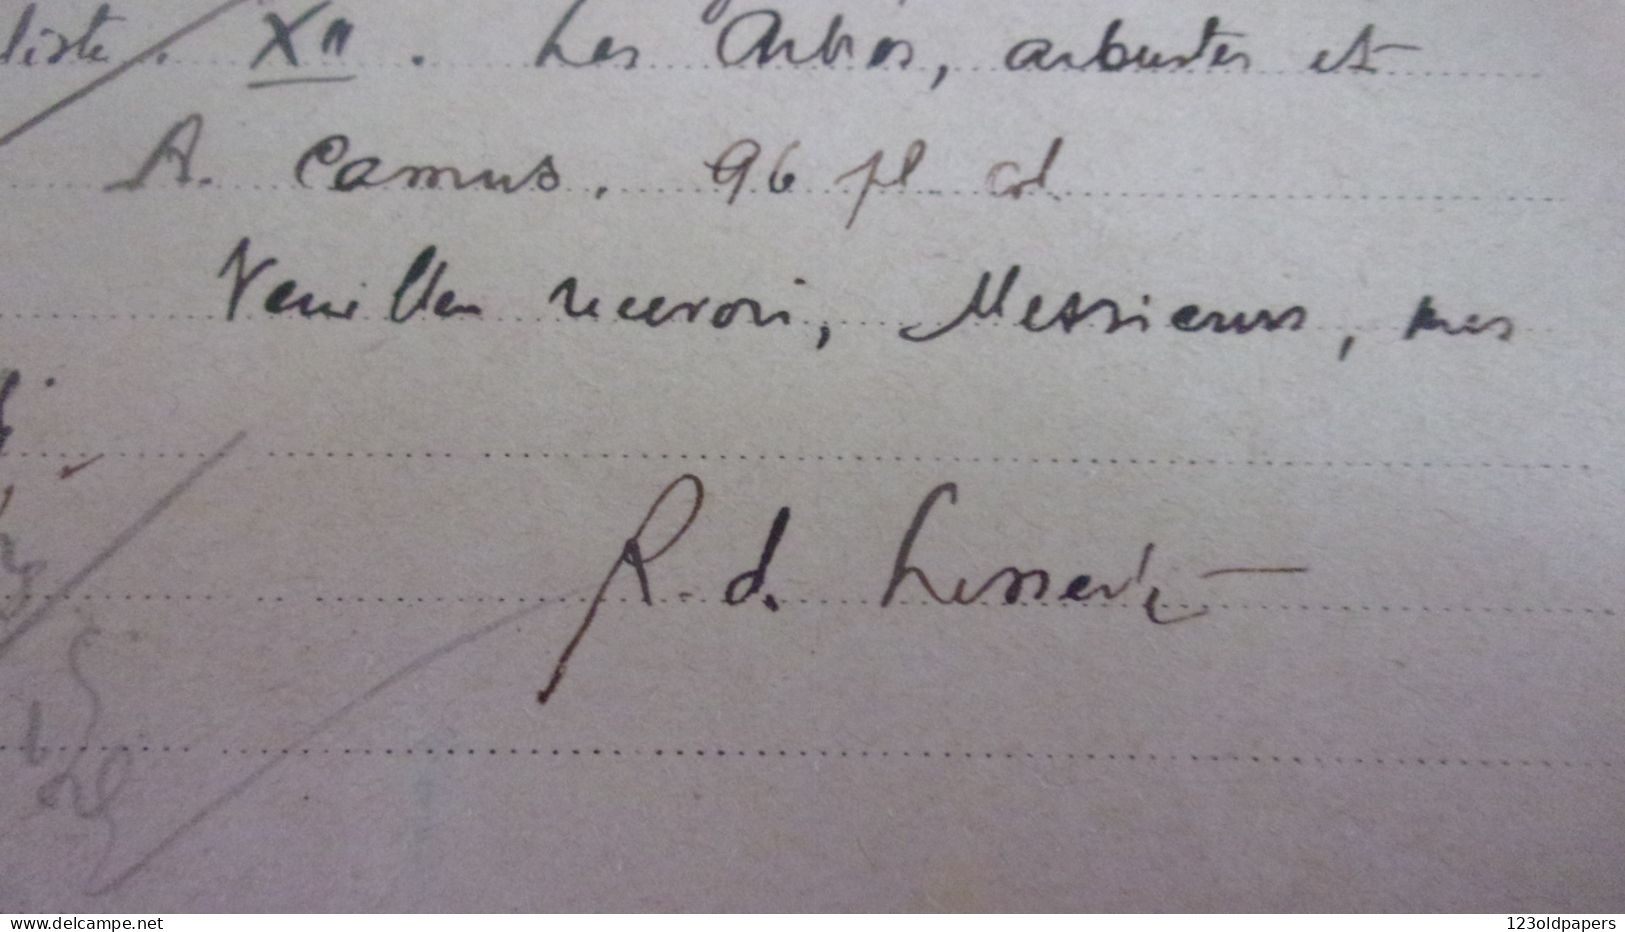 liste. XII. Les Arbres, arbustes et
A. Camus. 96 pl. col.
Veuillez recevoir, Messieurs, mes
R. d. Lessert
www.delcampe.net
123oldpapers